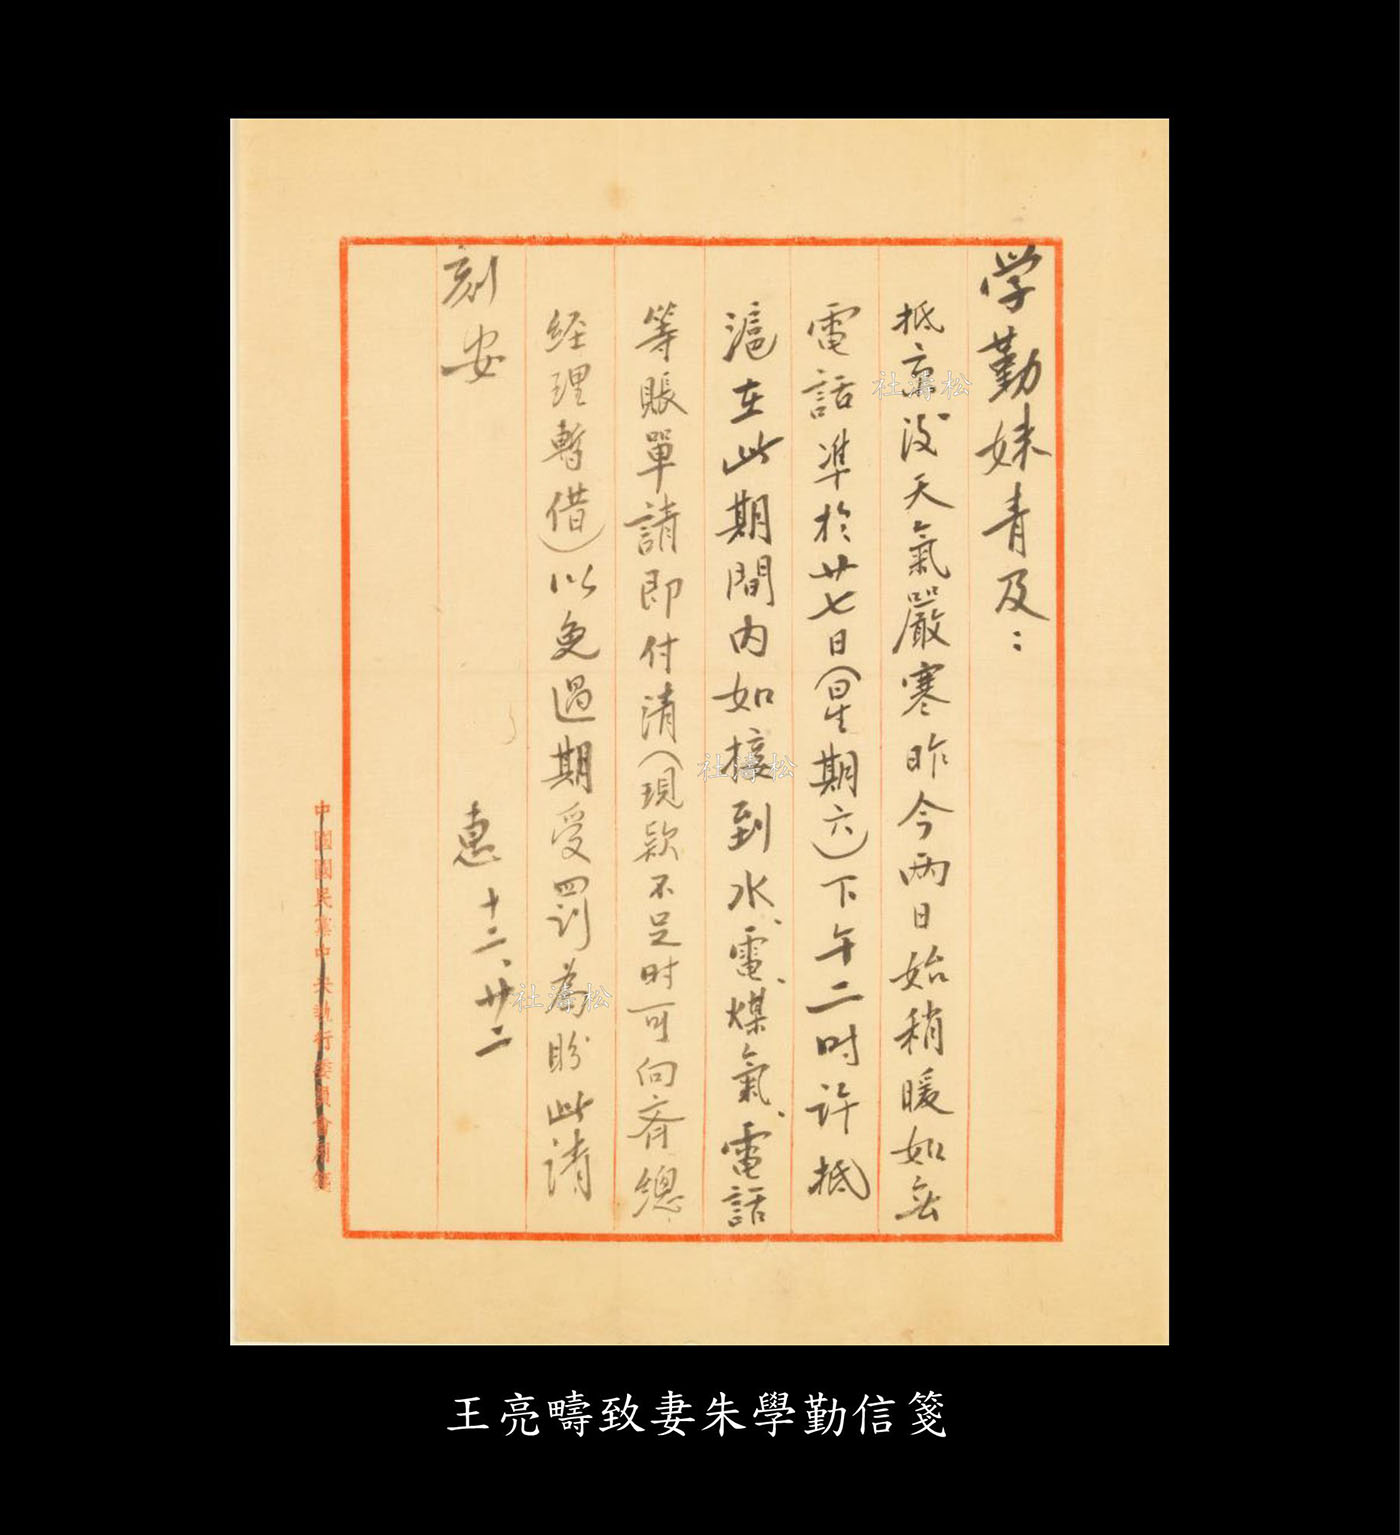 学勤妹青及：
抵京後天氣嚴寒昨今兩日始稍暖如無
電話準於廿七日（星期六）下午二时許抵
滬在此期間内如接到水、電、煤氣、電話
等賬單請即付清（現款不足时可向齐總
経理暫借）以免過期受罰為盼此請
刻安
惠 十二、廿二
中國國民黨中央執行委員會用箋
社濤松
社濤松
社濤松
王亮疇致妻朱學勤信箋